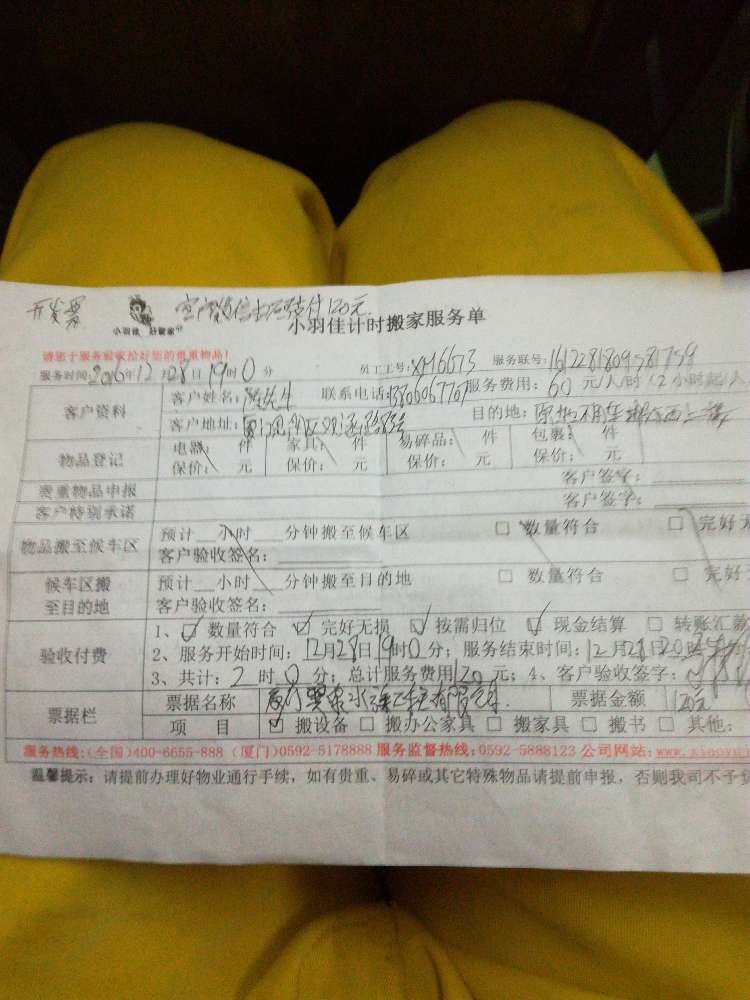 开发票 客户微信支付120元
小羽佳 好管家
小羽佳计时搬家服务单
请您于服务验收给好您的贵重物品!
服务时间:2016年12月28日19时0分 员工工号:XM6673 服务联号:1612281809581759
客户资料 客户姓名: 先生 联系电话: 服务费用:60元/人/时(2小时起/人
客户地址: 目的地:
物品登记 电器: 件 家具: 件 易碎品: 件 包裹: 件
保价: 元 保价: 元 保价: 元 保价: 元
贵重物品申报 客户签字:
客户特别承诺 客户签字:
物品搬至候车区 预计 小时 分钟搬至候车区 □ 数量符合 □ 完好无
客户验收签名:
候车区搬至目的地 预计 小时 分钟搬至目的地 □ 数量符合 □ 完好
客户验收签名:
验收付费 1、☑ 数量符合 ☑ 完好无损 ☑ 按需归位 ☑ 现金结算 □ 转账汇款
2、服务开始时间:12月28日19时0分;服务结束时间:12月28日20时
3、共计:2时0分;总计服务费用120元;4、客户验收签字:
票据栏 票据名称 有限公司 票据金额 120元
项 目 ☑ 搬设备 □ 搬办公家具 □ 搬家具 □ 搬书 □ 其他:
服务热线:(全国)400-6655-888 (厦门)0592-5178888 服务监督热线:0592-5888123 公司网站:www.xiaoyu
温馨提示:请提前办理好物业通行手续,如有贵重、易碎或其它特殊物品请提前申报,否则我司不予负